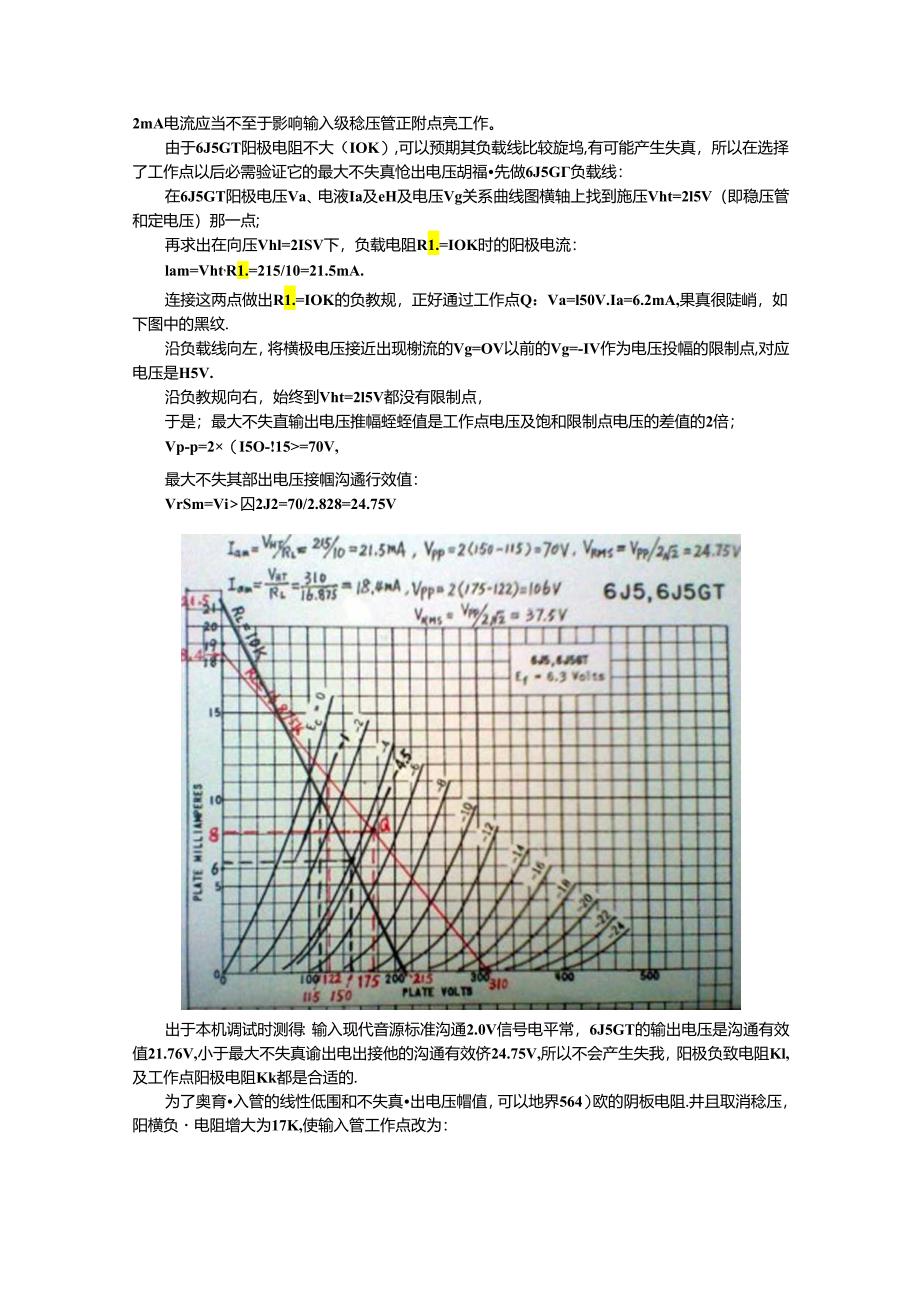 2mA电流应当不至于影响输入级稔压管正附点亮工作。
由于6J5GT阳极电阻不大（IOK）,可以预期其负载线比较旋坞,有可能产生失真，所以在选择
了工作点以后必需验证它的最大不失真怆出电压胡福•先做6J5GΓ负载线：
在6J5GT阳极电压Va、电液Ia及eH及电压Vg关系曲线图横轴上找到施压Vht=2l5V（即稳压管
和定电压）那一点;
再求出在向压Vhl=2ISV下，负载电阻R1.=IOK时的阳极电流：
lam=Vht∙R1.=215/10=21.5mA.
连接这两点做出R1.=IOK的负教规，正好通过工作点Q：Va=l50V.Ia=6.2mA,果真很陡峭，如
下图中的黑纹.
沿负载线向左，将横极电压接近出现榭流的Vg=OV以前的Vg=-IV作为电压投幅的限制点,对应
电压是H5V.
沿负教规向右，始终到Vht=2l5V都没有限制点，
于是；最大不失直输出电压推幅蛭蛭值是工作点电压及饱和限制点电压的差值的2倍；
Vp-p=2×（I5O-!15>=70V,
最大不失其部出电压接帼沟通行效值：
VrSm=Vi>囚2J2=70/2.828=24.75V
Iam=VHT/RL=215/10=21.5mA, VPP=2(150-115)=70V, VRMS=VPP/2√2=24.75V
Iam=VHT/RL=310/16.875=18.4mA, VPP=2(175-122)=106V
6J5,6J5GT
VRMS=VPP/2√2=37.5V
21.5
21
20
19
18
8.4
15
10
8
6
5
0
RL=10K
RL=16.875K
6J5,6J5GT
Ef = 6.3 Volts
Ec = 0
-1
-2
-4
-4.5
-6
-8
-10
-12
-14
-16
-18
-20
-22
-24
Q
PLATE MILLIAMPERES
0 100 122 175 200 215 300 310 400 500
115 150
PLATE VOLTS
出于本机调试时测得 输入现代音源标准沟通2.0V信号电平常，6J5GT的输出电压是沟通有效
值21.76V,小于最大不失真谕出电出接他的沟通有效侪24.75V,所以不会产生失我，阳极负致电阻Kl,
及工作点阳极电阻Kk都是合适的.
为了奥育•入管的线性低围和不失真•出电压帽值，可以地界564）欧的阴板电阻.井且取消稔压，
阳横负・电阻增大为17K,使输入管工作点改为：